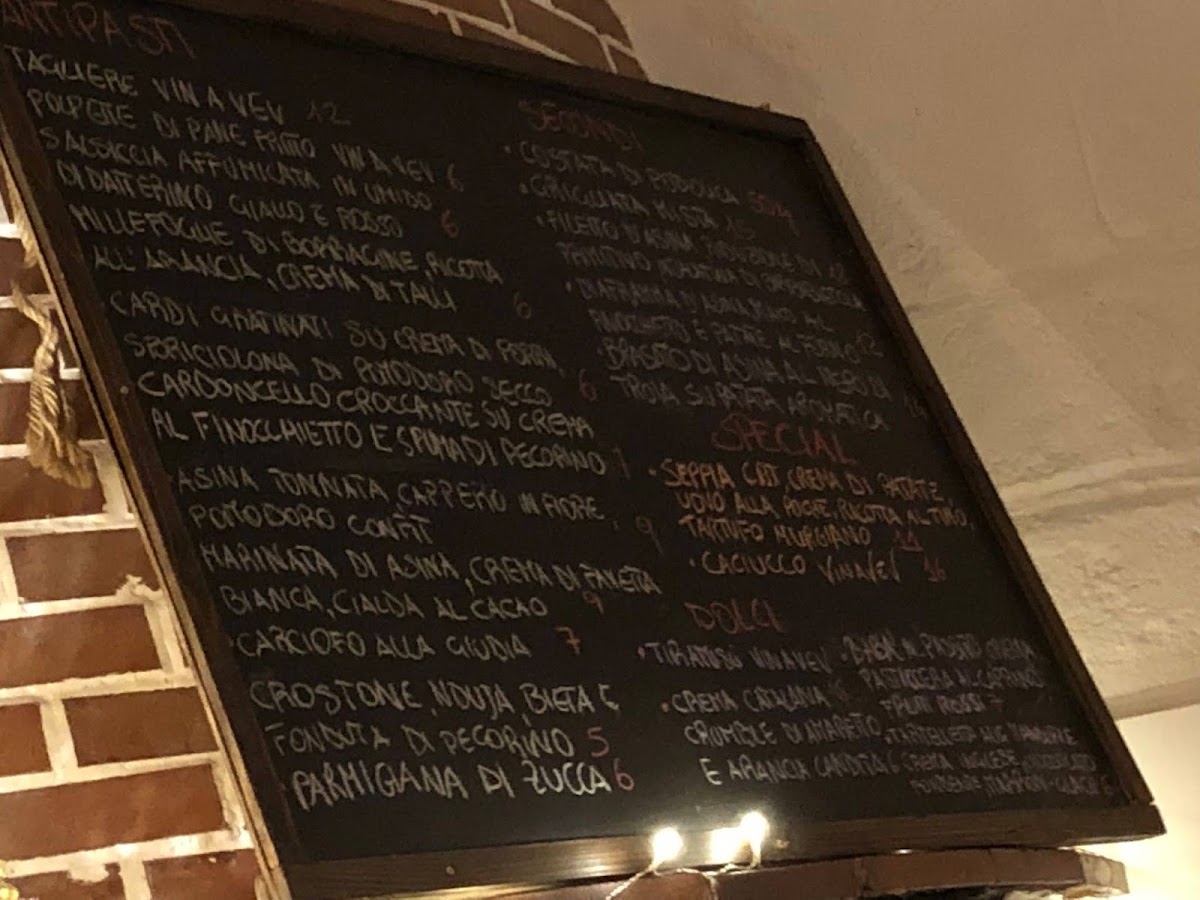 ANTIPASTI
TAGLIERE VIN A VEV 12
POLPETTE DI PANE FRITTO VIN A VEV 6
SALSICCIA AFFUMICATA IN UMIDO
DI DATTERINO GIALLO E ROSSO 6
MILLEFOGLIE DI BORRAGINE, RICOTTA
ALL'ARANCIA, CREMA DI TALLI 6
CARDI GRATINATI SU CREMA DI PORRI,
SBRICIOLONA DI POMODORO SECCO 6
• CARDONCELLO CROCCANTE SU CREMA
AL FINOCCHIETTO E SPUMA DI PECORINO 7
• ASINA TONNATA, CAPPERO IN FIORE,
POMODORO CONFIT 9
MARINATA DI ASINA, CREMA DI FAVETTA
BIANCA, CIALDA AL CACAO 9
• CARCIOFO ALLA GIUDIA 7
CROSTONE, NDUJA, BIETA E
FONDUTA DI PECORINO 5
• PARMIGIANA DI ZUCCA 6
SECONDI
• COSTATA DI PODOLICA
• GRIGLIATA MISTA 15
• FILETTO D'ASINA, RIDUZIONE DI 12
PRIMITIVO
• DIAFRAMMA D'ASINA
FINOCCHIETTO E PATATE AL FORNO 12
• BRASATO DI ASINA AL NERO DI
TROIA SU PATATA AROMATICA 14
SPECIAL
• SEPPIA CBT, CREMA DI PATATE,
UOVO ALLA POCHE, RICOTTA AL FUMO,
TARTUFO MURGIANO 11
• CACIUCCO VINAVEV 16
DOLCI
• TIRAMISÙ VINAVEV
• CREMA CATALANA
CRUMBLE DI AMARETTO
E ARANCIA CANDITA 6
• BABÀ CREMA
PASTICCERA AL CAPRINO
FRUTTI ROSSI
• TARTELLETTA
CREMA INGLESE
FONDENTE, MARRON GLACÉ 6